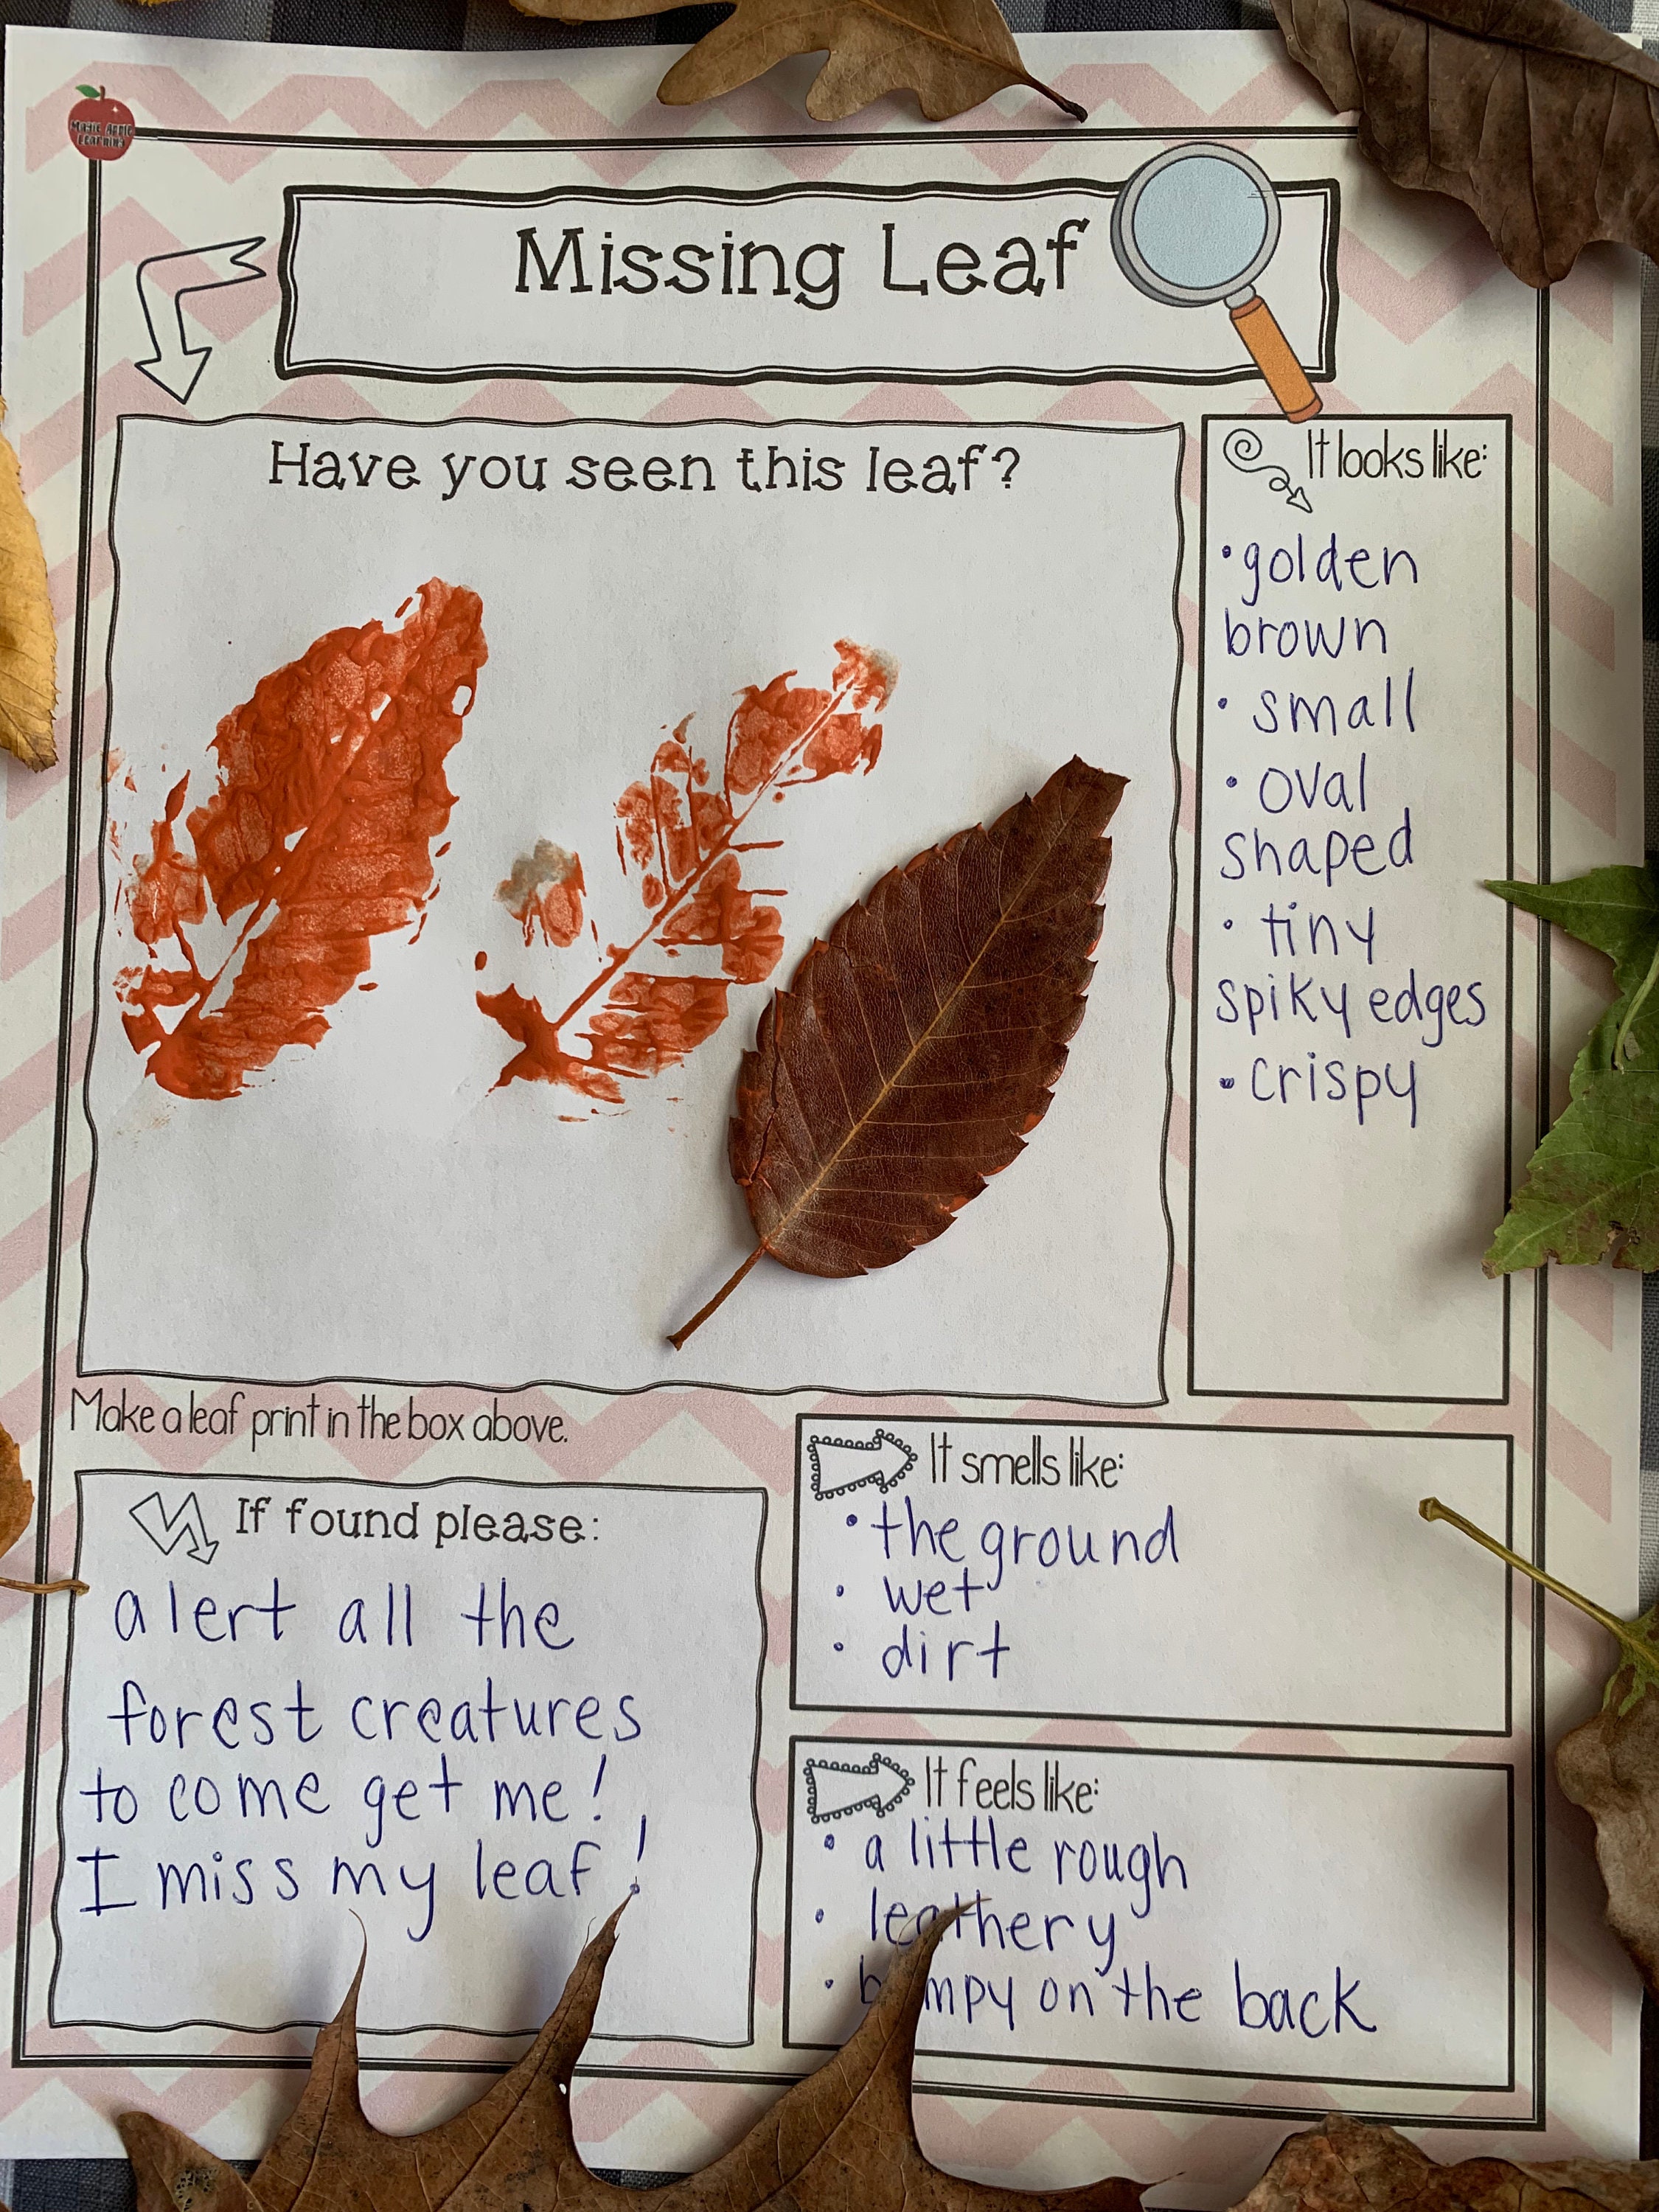 Magic Apple
Learning
Missing Leaf
Have you seen this leaf?
It looks like:
•golden
brown
• small
• oval
shaped
• tiny
spiky edges
• crispy
Make a leaf print in the box above.
If found please:
alert all the
forest creatures
to come get me!
I miss my leaf!
It smells like:
• the ground
• wet
• dirt
It feels like:
• a little rough
• leathery
• bumpy on the back